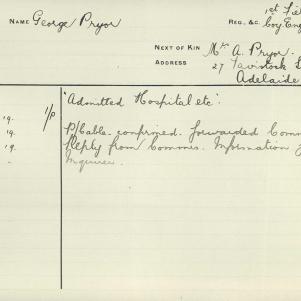 NAME George Pryor
1st Fie
REG., &C. Coy Eng
NEXT OF KIN Mr A. Pryor.
ADDRESS 27 Tavistock S
Adelaide
1/P "Admitted Hospital etc".
19. P/Cable confirmed. forwarded Comm
19. Reply from Commrs. Information
Inquirer.